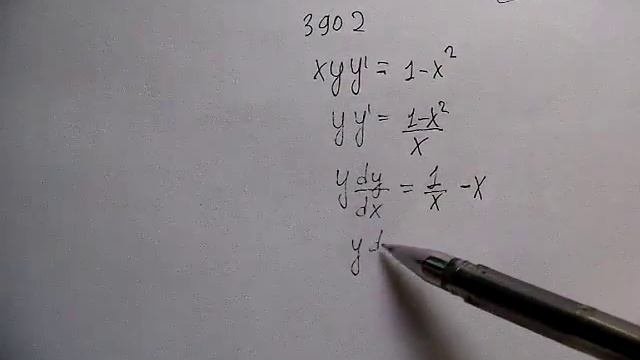 3902
xyy' = 1-x²
yy' = (1-x²)/x
y dy/dx = 1/x - x
y d